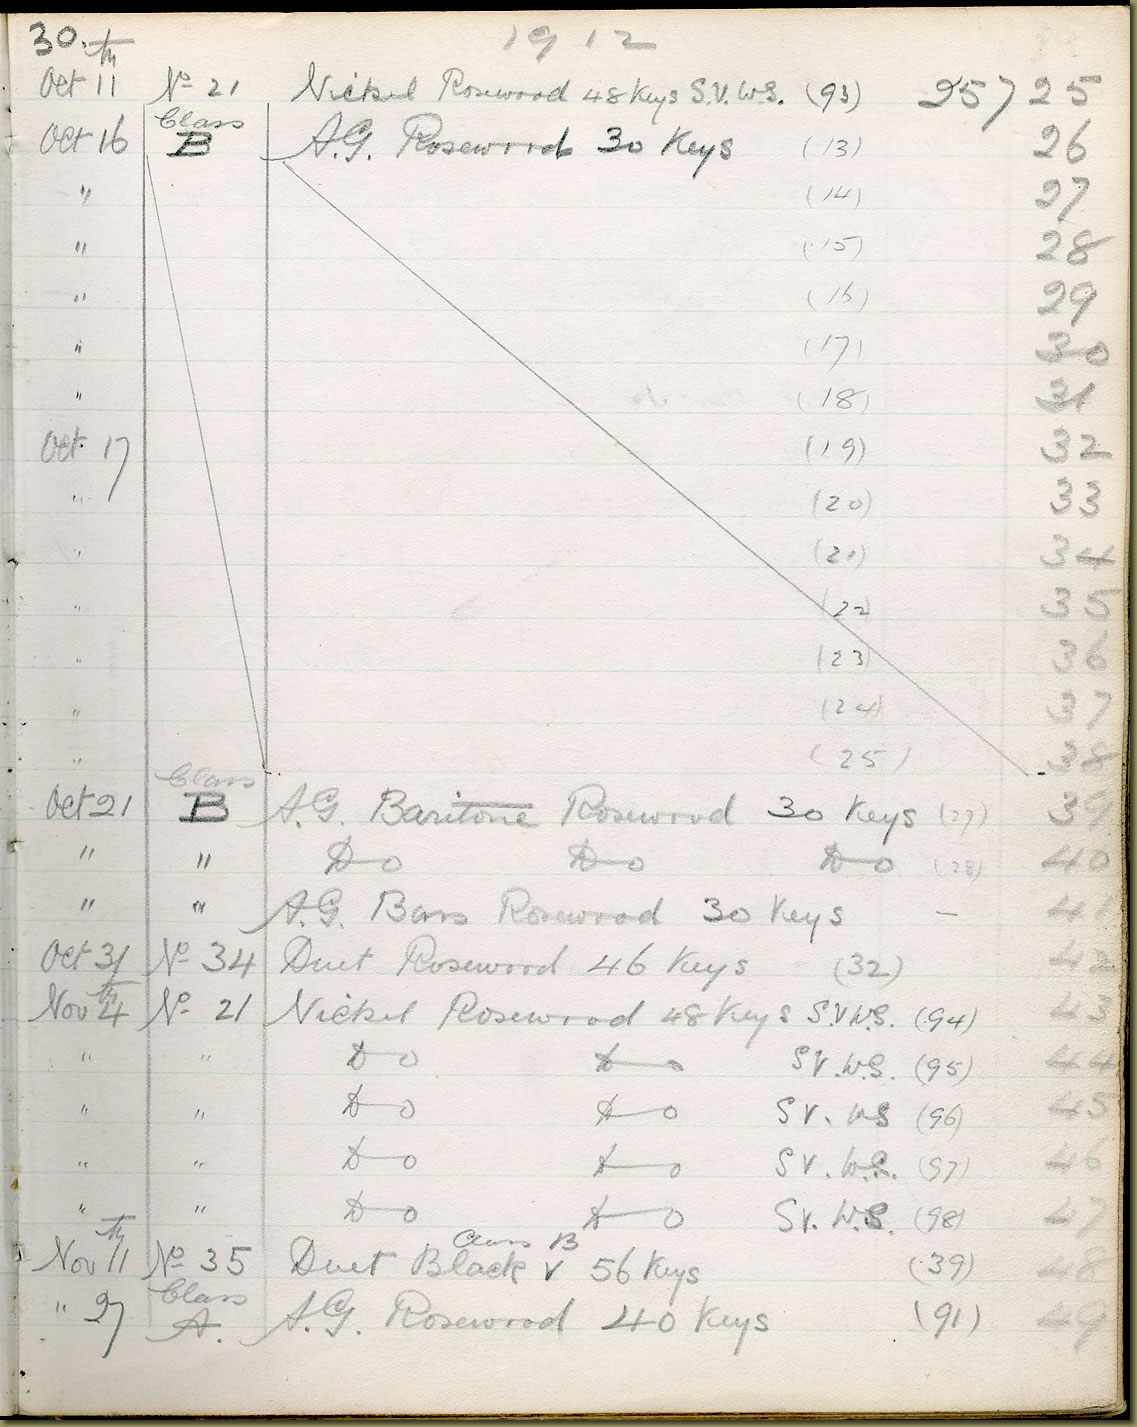 30. 1912
Oct 11th No 21 Nickel Rosewood 48 Keys S.V.W.S. (93) 25725
Oct 16 Class B A.G. Rosewood 30 Keys (13) 26
" (14) 27
" (15) 28
" (16) 29
" (17) 30
" (18) 31
Oct 17 (19) 32
" (20) 33
" (21) 34
" (22) 35
" (23) 36
" (24) 37
" (25) 38
Oct 21 Class B A.G. Baritone Rosewood 30 Keys (27) 39
" " Do Do Do (28) 40
" " A.G. Bass Rosewood 30 Keys — 41
Oct 31 No 34 Duet Rosewood 46 Keys (32) 42
Nov 4th No 21 Nickel Rosewood 48 Keys S.V.W.S. (94) 43
" " Do Do S.V.W.S. (95) 44
" " Do Do S V. W S (96) 45
" " Do Do S V. W.S. (97) 46
" " Do Do S V. W.S. (98) 47
Nov 11th No 35 Duet Black Class B v 56 Keys (39) 48
" 27 Class A. A.G. Rosewood 40 Keys (91) 49